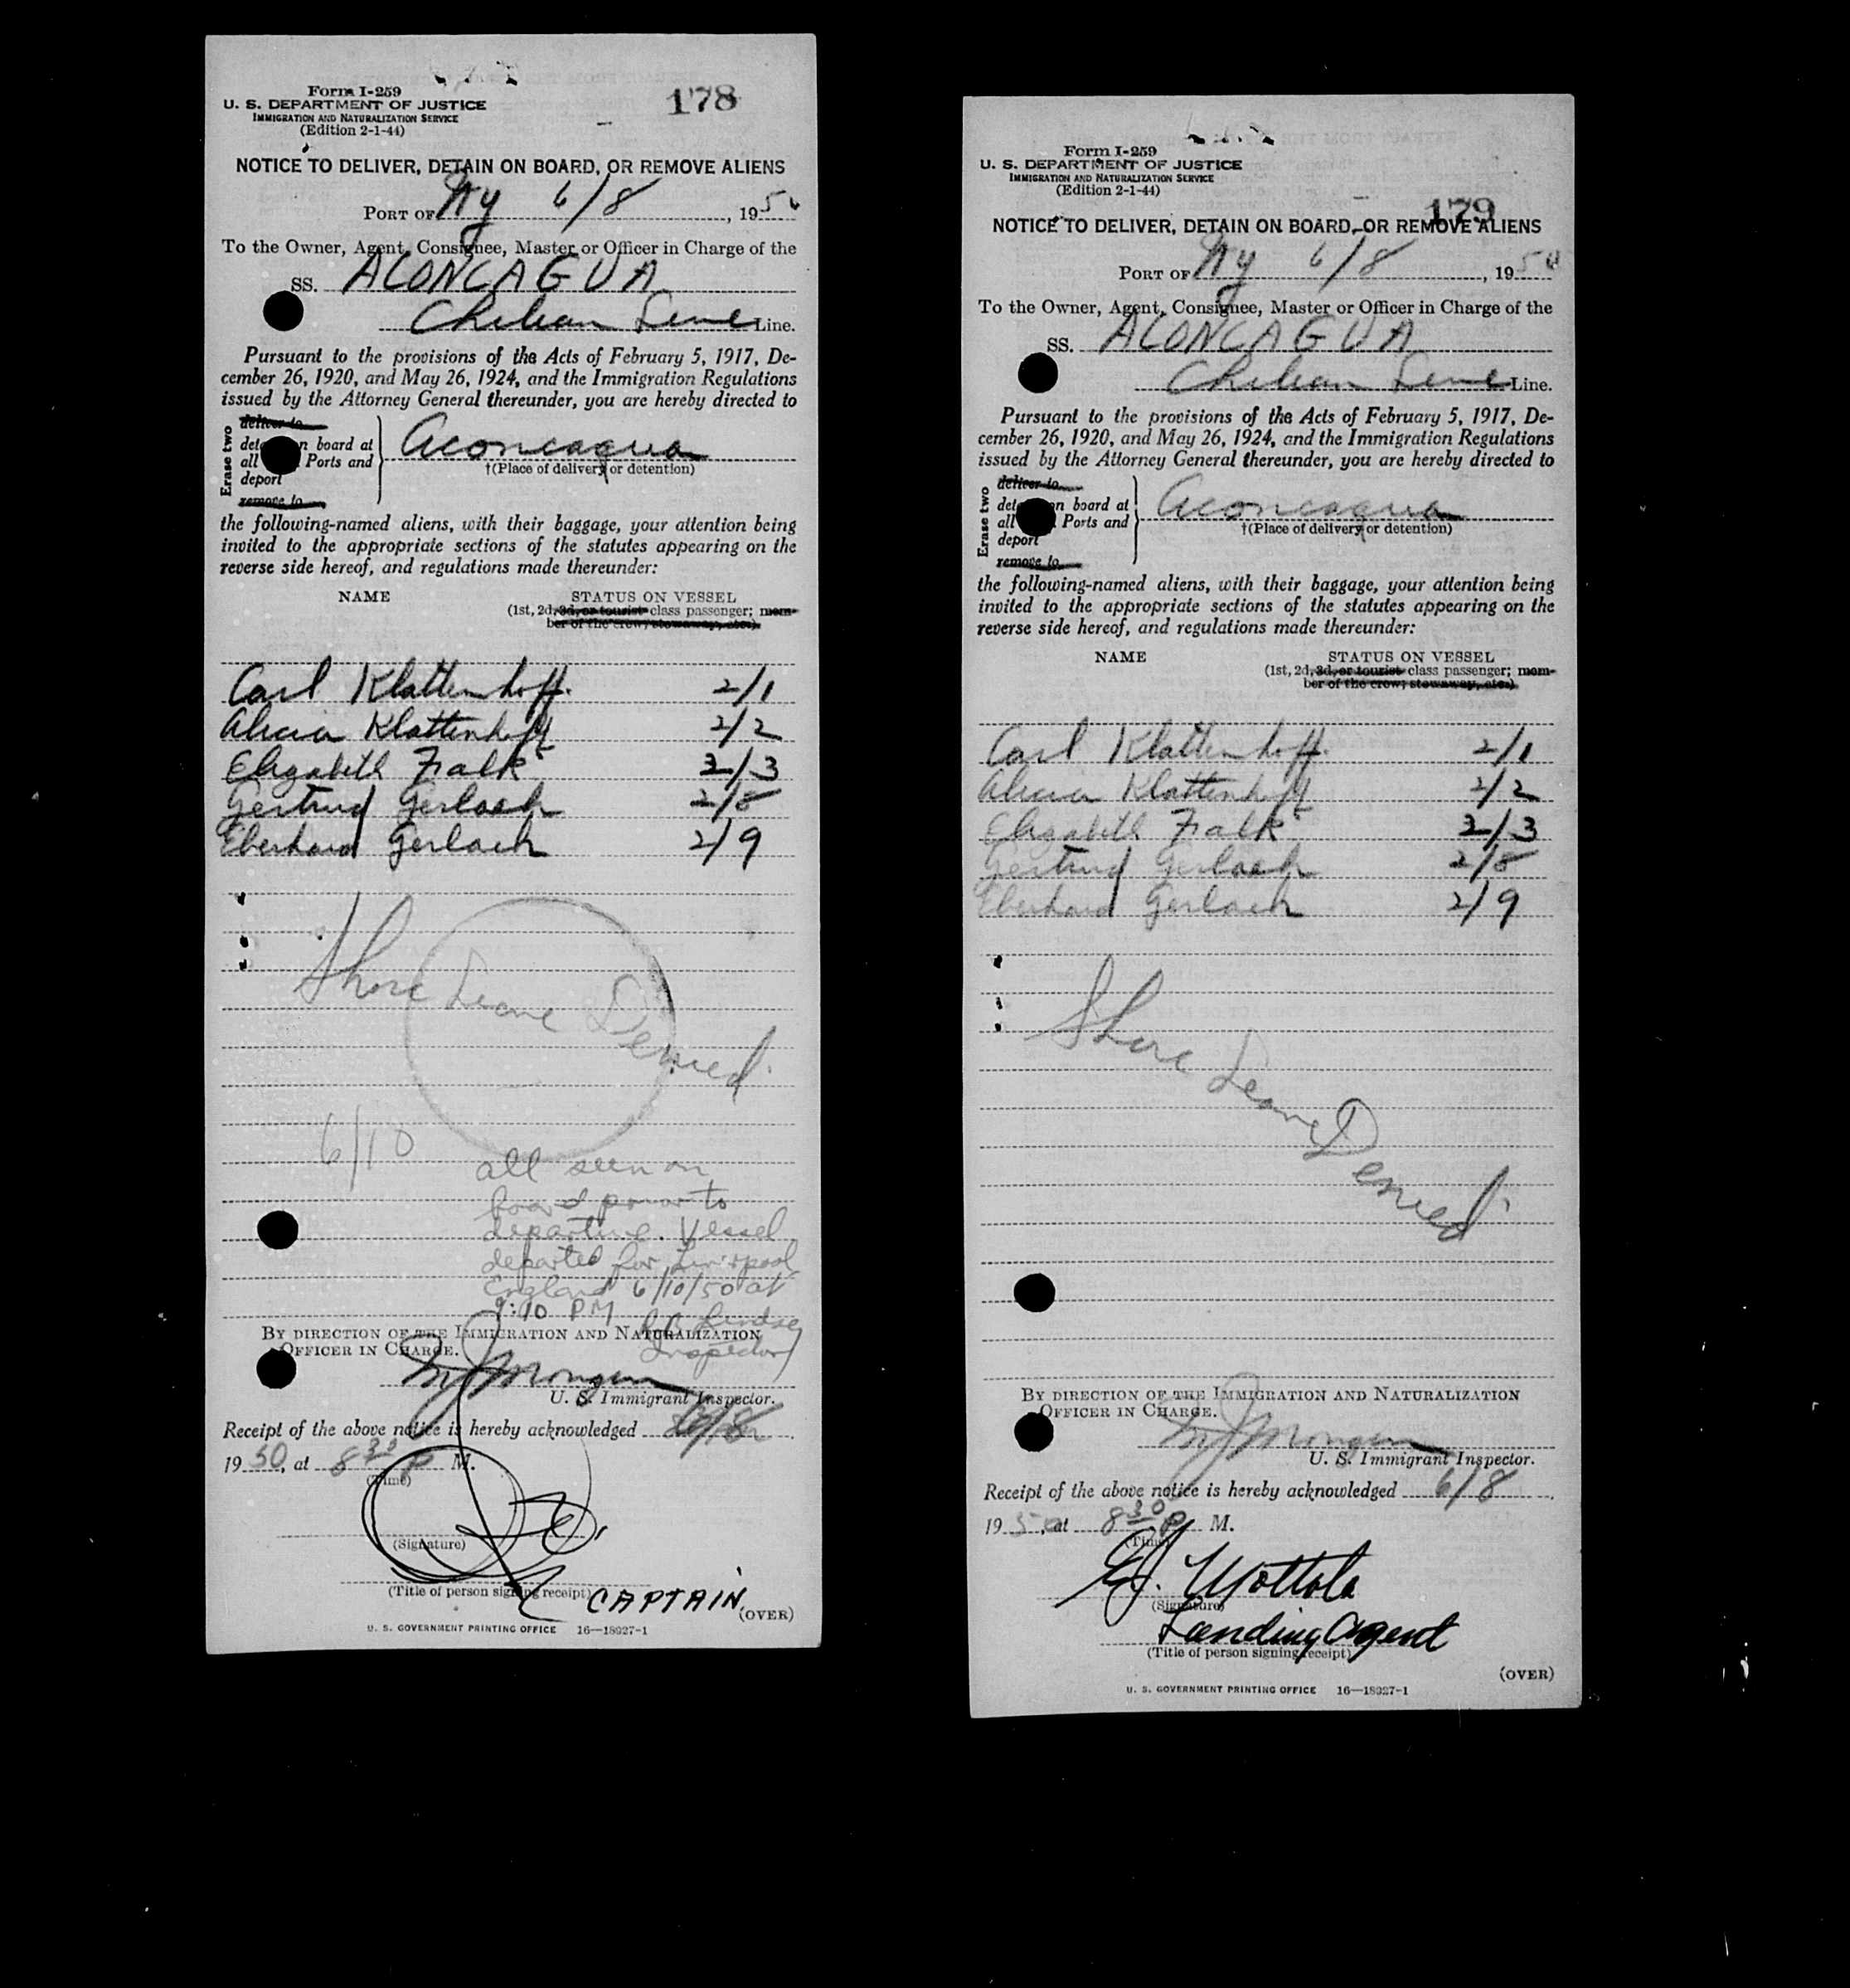 Form I-259
U. S. DEPARTMENT OF JUSTICE
IMMIGRATION AND NATURALIZATION SERVICE
(Edition 2-1-44)
178
NOTICE TO DELIVER, DETAIN ON BOARD, OR REMOVE ALIENS
PORT OF NY 6/8, 1950
To the Owner, Agent, Consignee, Master or Officer in Charge of the
SS. ACONCAGUA
Chilean Line Line.
Pursuant to the provisions of the Acts of February 5, 1917, De-
cember 26, 1920, and May 26, 1924, and the Immigration Regulations
issued by the Attorney General thereunder, you are hereby directed to
Erase two
deliver to
det n board at
all Ports and
deport
remove to
Aconcagua
†(Place of delivery or detention)
the following-named aliens, with their baggage, your attention being
invited to the appropriate sections of the statutes appearing on the
reverse side hereof, and regulations made thereunder:
NAME STATUS ON VESSEL
(1st, 2d, 3d, or tourist class passenger; mem-
ber of the crew, stowaway, etc.)
Carl Klattenhoff. 2/1
Alicia Klattenhoff 2/2
Elizabeth Falk 2/3
Gertrud Gerlach 2/8
Eberhard Gerlach 2/9
Shore Leave Denied
6/10
all seen on
board prior to
departure. Vessel
departed for Liverpool,
England 6/10/50 at
9:10 PM
Lindsey
Inspector
BY DIRECTION OF THE IMMIGRATION AND NATURALIZATION
OFFICER IN CHARGE.
U. S. Immigrant Inspector.
Receipt of the above notice is hereby acknowledged 6/8
1950, at 8 30 P M.
(Time)
(Signature)
(Title of person signing receipt)
CAPTAIN.
(OVER)
U. S. GOVERNMENT PRINTING OFFICE 16—18027-1
Form I-259
U. S. DEPARTMENT OF JUSTICE
IMMIGRATION AND NATURALIZATION SERVICE
(Edition 2-1-44)
179
NOTICE TO DELIVER, DETAIN ON BOARD, OR REMOVE ALIENS
PORT OF NY 6/8, 1950
To the Owner, Agent, Consignee, Master or Officer in Charge of the
SS. ACONCAGUA
Chilean Line Line.
Pursuant to the provisions of the Acts of February 5, 1917, De-
cember 26, 1920, and May 26, 1924, and the Immigration Regulations
issued by the Attorney General thereunder, you are hereby directed to
Erase two
deliver to
det n board at
all Ports and
deport
remove to
Aconcagua
†(Place of delivery or detention)
the following-named aliens, with their baggage, your attention being
invited to the appropriate sections of the statutes appearing on the
reverse side hereof, and regulations made thereunder:
NAME STATUS ON VESSEL
(1st, 2d, 3d, or tourist class passenger; mem-
ber of the crew, stowaway, etc.)
Carl Klattenhoff. 2/1
Alicia Klattenhoff 2/2
Elizabeth Falk 2/3
Gertrud Gerlach 2/8
Eberhard Gerlach 2/9
Shore Leave Denied
BY DIRECTION OF THE IMMIGRATION AND NATURALIZATION
OFFICER IN CHARGE.
U. S. Immigrant Inspector.
Receipt of the above notice is hereby acknowledged 6/8,
1950, at 8 30 P M.
(Time)
E. J. Mottola
(Signature)
Landing Agent
(Title of person signing receipt)
(OVER)
U. S. GOVERNMENT PRINTING OFFICE 16—18027-1